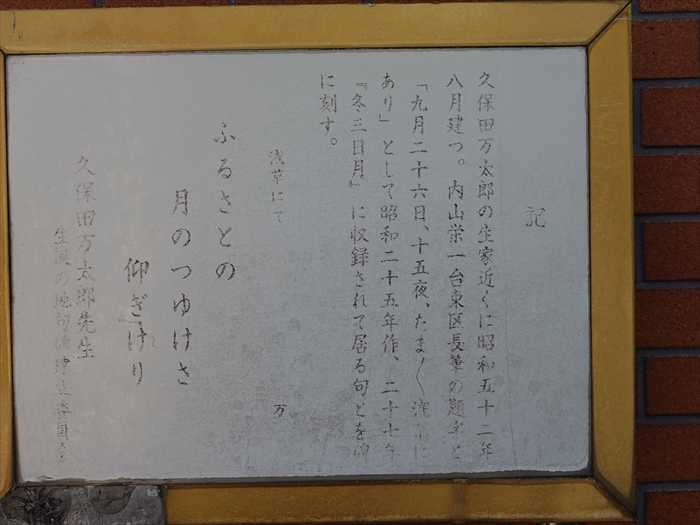 記
久保田万太郎の生家近くに昭和五十二年
八月建つ。内山栄一台東区長筆の題字と
「九月二十六日、十五夜、たま〳〵浅草に
あり」として昭和二十五年作、二十七年
『冬三日月』に収録されて居る句とを
に刻す。
浅草にて
万
ふるさとの
月のつゆけさ
仰ぎけり
久保田万太郎先生
生誕の地句碑建立